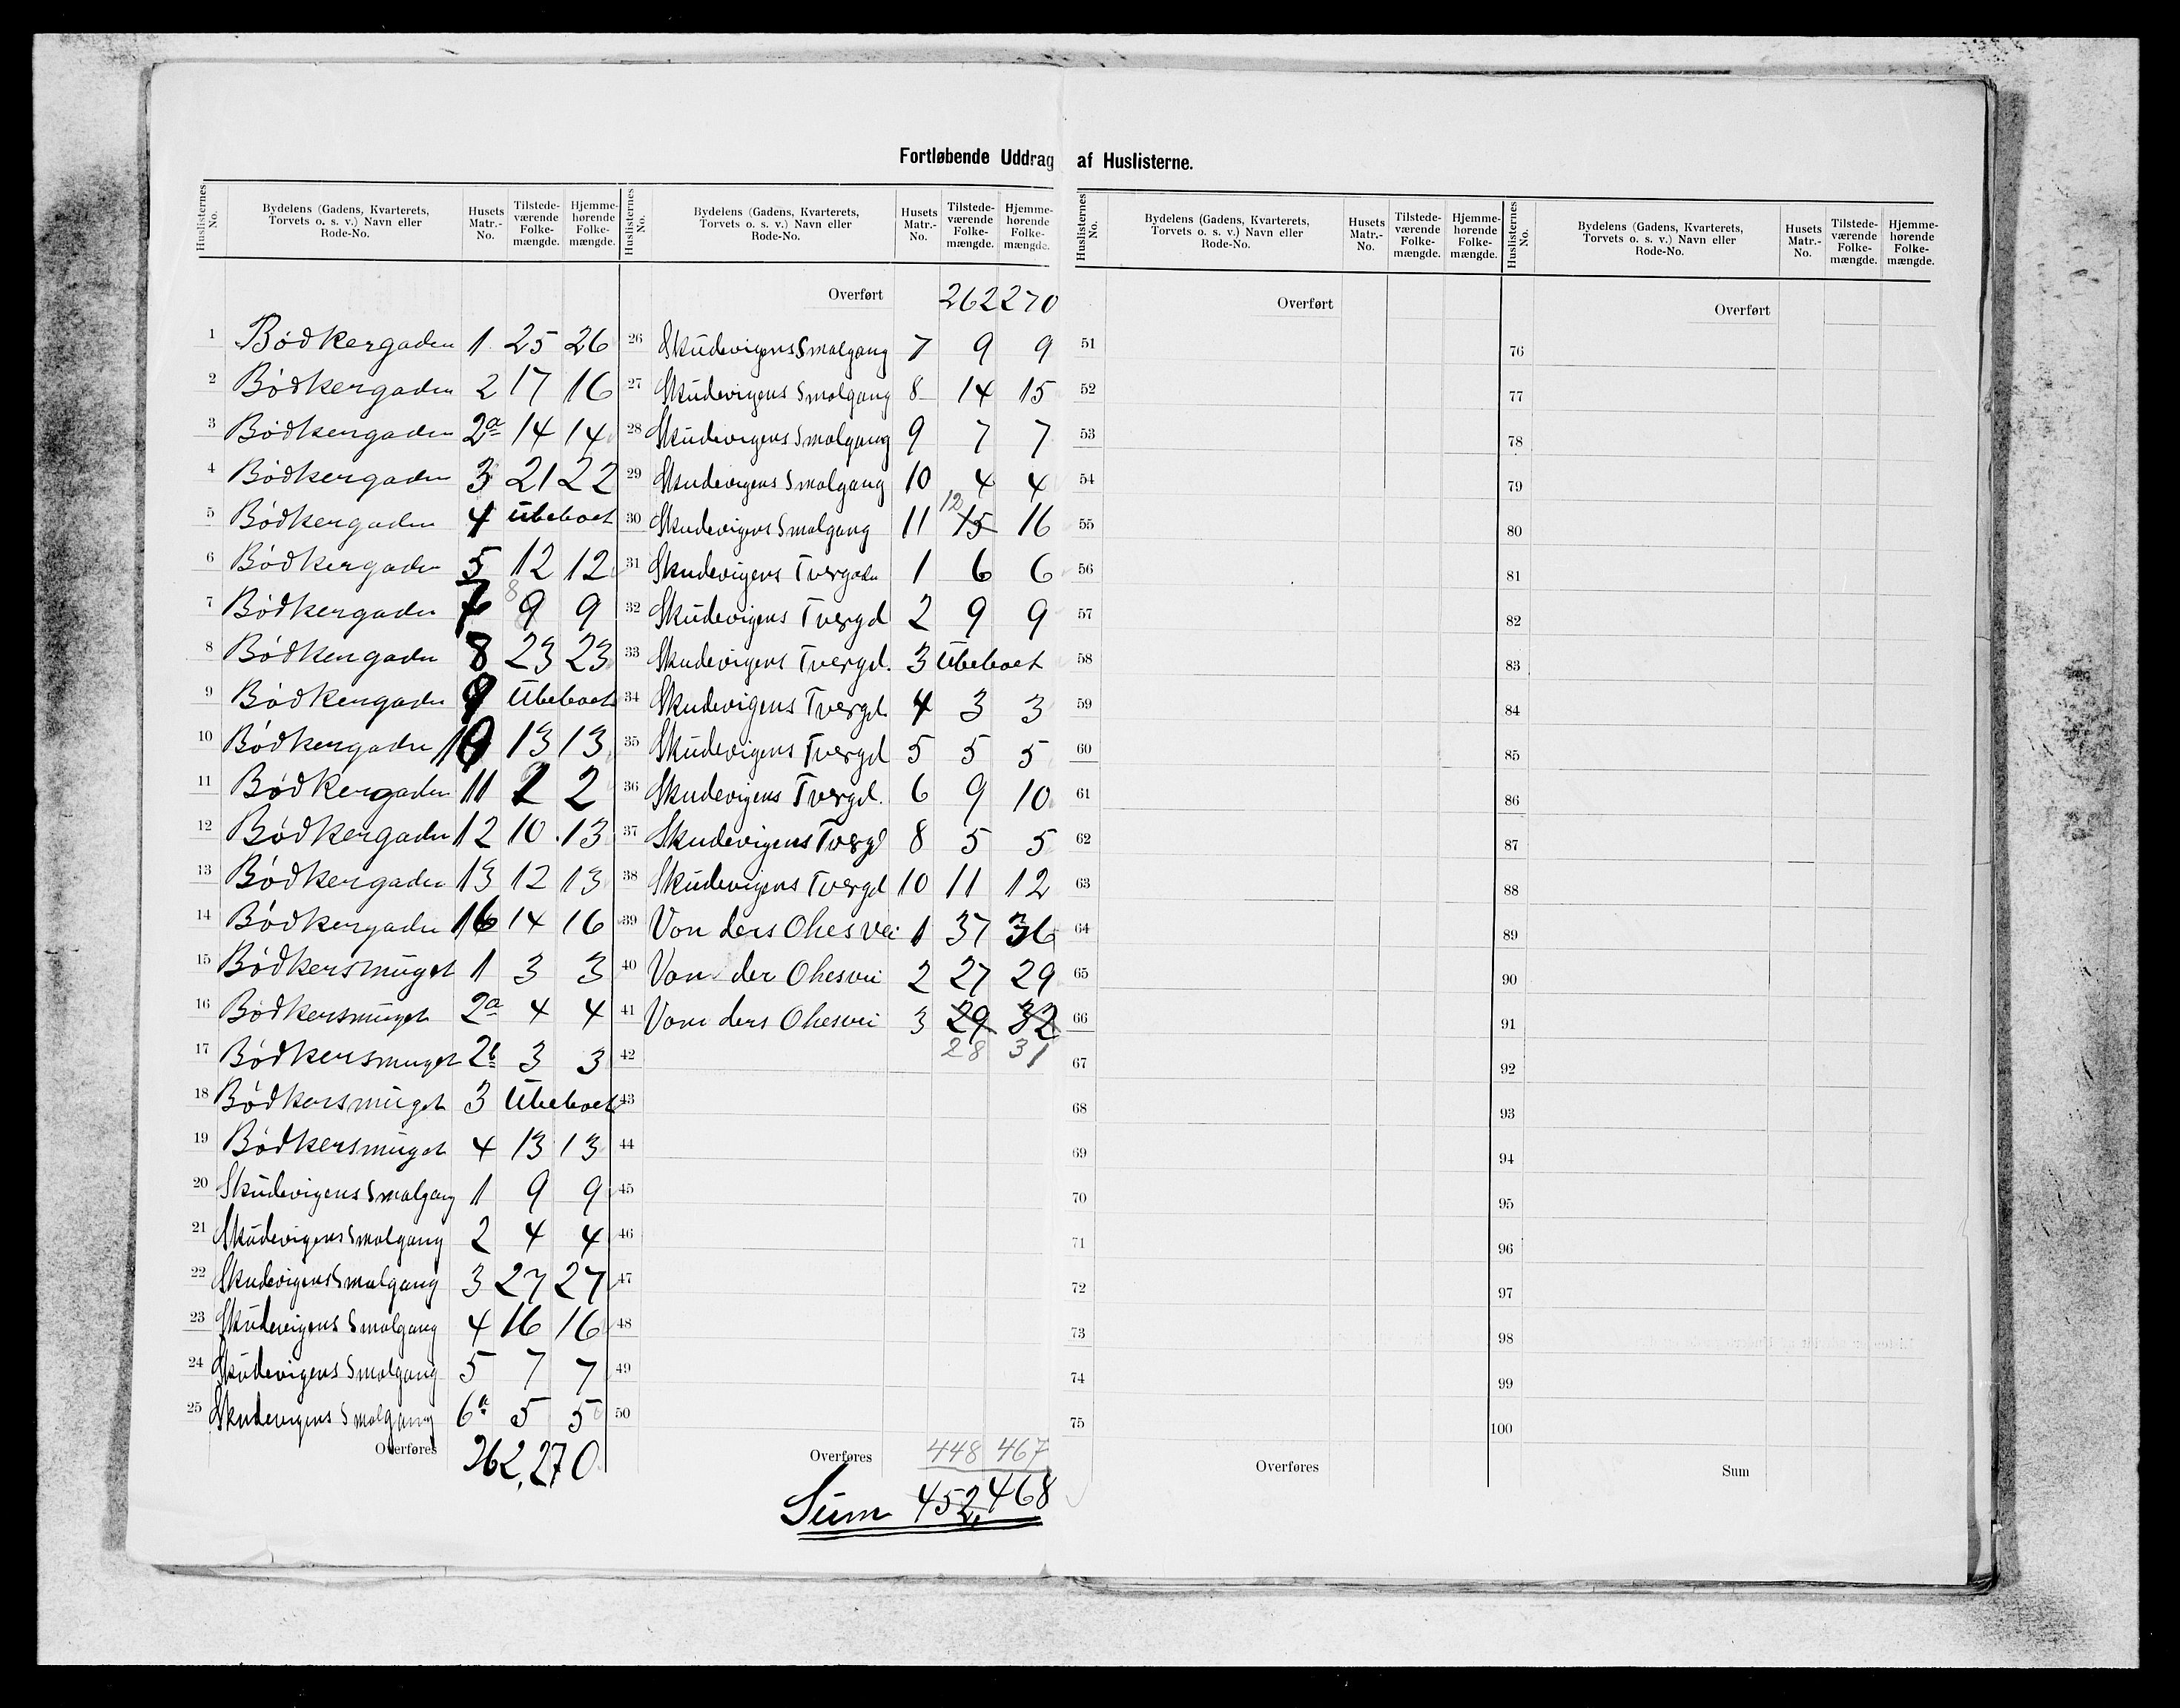 Fortløbende Uddrag af Huslisterne.
Huslisternes No. | Bydelens (Gadens, Kvarterets, Torvets o. s. v.) Navn eller Rode-No. | Husets Matr.-No. | Tilstede-værende Folke-mængde. | Hjemme-hørende Folke-mængde.
1 Bödkergaden 1 25 26
2 Bödkergaden 2 17 16
3 Bödkergaden 2a 14 14
4 Bödkergaden 3 21 22
5 Bödkergaden 4 Ubeboet
6 Bödkergaden 5 12 12
7 Bödkergaden 7 8 9 9
8 Bödkergaden 8 23 23
9 Bödkergaden 9 Ubeboet
10 Bödkergaden 10 13 13
11 Bödkergaden 11 2 2
12 Bödkergaden 12 10 13
13 Bödkergaden 13 12 13
14 Bödkergaden 16 14 16
15 Bödkersmuget 1 3 3
16 Bödkersmuget 2a 4 4
17 Bödkersmuget 2b 3 3
18 Bödkersmuget 3 Ubeboet
19 Bödkersmuget 4 13 13
20 Skudevigens Smalgang 1 9 9
21 Skudevigens Smalgang 2 4 4
22 Skudevigens Smalgang 3 27 27
23 Skudevigens Smalgang 4 16 16
24 Skudevigens Smalgang 5 7 7
25 Skudevigens Smalgang 6a 5 5
Overføres 262, 270
Huslisternes No. | Bydelens (Gadens, Kvarterets, Torvets o. s. v.) Navn eller Rode-No. | Husets Matr.-No. | Tilstede-værende Folke-mængde. | Hjemme-hørende Folke-mængde.
Overført 262 270
26 Skudevigens Smalgang 7 9 9
27 Skudevigens Smalgang 8 14 15
28 Skudevigens Smalgang 9 7 7
29 Skudevigens Smalgang 10 4 4
30 Skudevigens Smalgang 11 12 15 16
31 Skudevigens Tvergadn 1 6 6
32 Skudevigens Tvergd 2 9 9
33 Skudevigens Tvergd. 3 Ubeboet
34 Skudevigens Tvergd 4 3 3
35 Skudevigens Tvergd 5 5 5
36 Skudevigens Tvergd. 6 9 10
37 Skudevigens Tvergd 8 5 5
38 Skudevigens Tvergd 10 11 12
39 Von ders Ohes vei 1 37 36
40 Von der Ohesvei 2 27 29
41 Von ders Ohesvei 3 29 32
42 28 31
43
44
45
46
47
48
49
50
Overføres 448 467
Sum 452, 468
Huslisternes No. | Bydelens (Gadens, Kvarterets, Torvets o. s. v.) Navn eller Rode-No. | Husets Matr.-No. | Tilstede-værende Folke-mængde. | Hjemme-hørende Folke-mængde.
Overført
51
52
53
54
55
56
57
58
59
60
61
62
63
64
65
66
67
68
69
70
71
72
73
74
75
Overføres
Huslisternes No. | Bydelens (Gadens, Kvarterets, Torvets o. s. v.) Navn eller Rode-No. | Husets Matr.-No. | Tilstede-værende Folke-mængde. | Hjemme-hørende Folke-mængde.
Overført
76
77
78
79
80
81
82
83
84
85
86
87
88
89
90
91
92
93
94
95
96
97
98
99
100
Sum